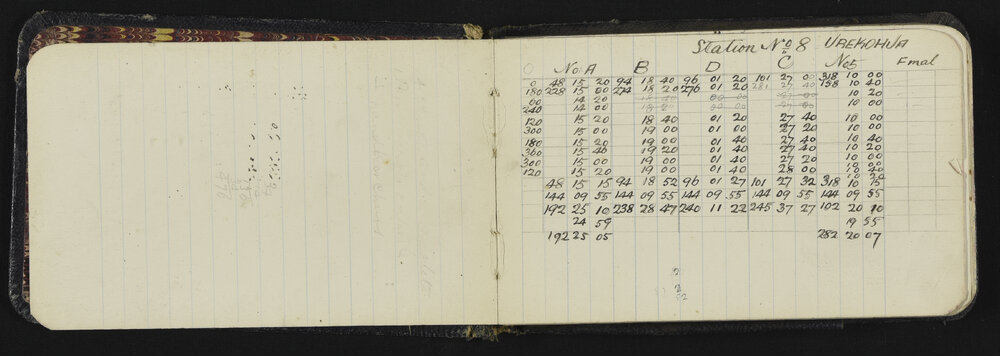 Station No 8 UREKOHUA
O No A B D C No 5 Final
0 48 15 20 94 18 40 96 01 20 101 27 00 318 10 00
180 228 15 00 274 18 20 276 01 20 281 27 40 138 10 40
00 14 20 00 00 10 20
240 14 00 10 00
120 15 20 18 40 01 20 27 40 10 00
300 15 00 19 00 01 00 27 20 10 00
180 15 20 19 00 01 40 27 40 10 40
360 15 40 19 20 01 40 27 40 10 20
300 15 00 19 00 01 40 27 20 10 00
120 15 20 19 00 01 40 28 00 10 40
10 20
48 15 15 94 18 52 96 01 27 101 27 32 318 10 15
144 09 55 144 09 55 144 09 55 144 09 55 144 09 55
192 25 10 238 28 47 240 11 22 245 37 27 102 20 10
24 59 19 55
192 25 05 282 20 07
2
2
52